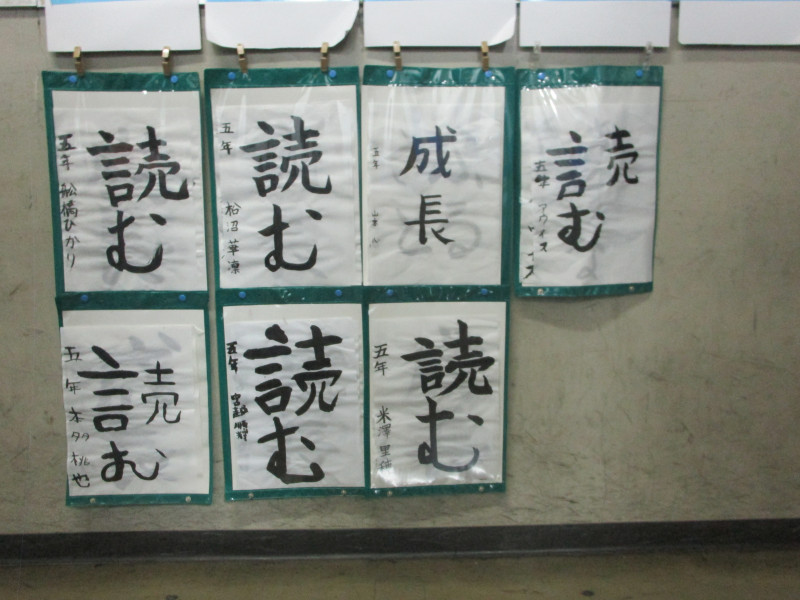 読む
五年 舩橋ひかり
読む
五年 松沼華凛
成長
五年
読む
五年
読む
五年 本多桃也
読む
五年
読む
五年 米澤里